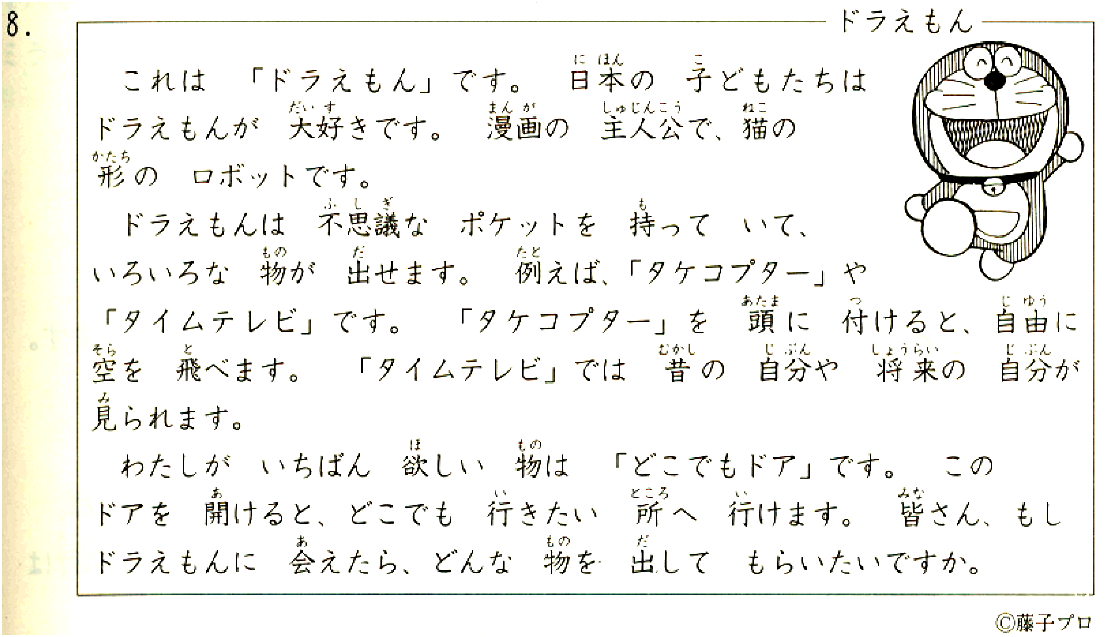 8.
ドラえもん
これは 「ドラえもん」です。 日本の 子どもたちは
ドラえもんが 大好きです。 漫画の 主人公で、猫の
形の ロボットです。
ドラえもんは 不思議な ポケットを 持って いて、
いろいろな 物が 出せます。 例えば、「タケコプター」や
「タイムテレビ」です。 「タケコプター」を 頭に 付けると、自由に
空を 飛べます。 「タイムテレビ」では 昔の 自分や 将来の 自分が
見られます。
わたしが いちばん 欲しい 物は 「どこでもドア」です。 この
ドアを 開けると、どこでも 行きたい 所へ 行けます。 皆さん、もし
ドラえもんに 会えたら、どんな 物を 出して もらいたいですか。
©藤子プロ